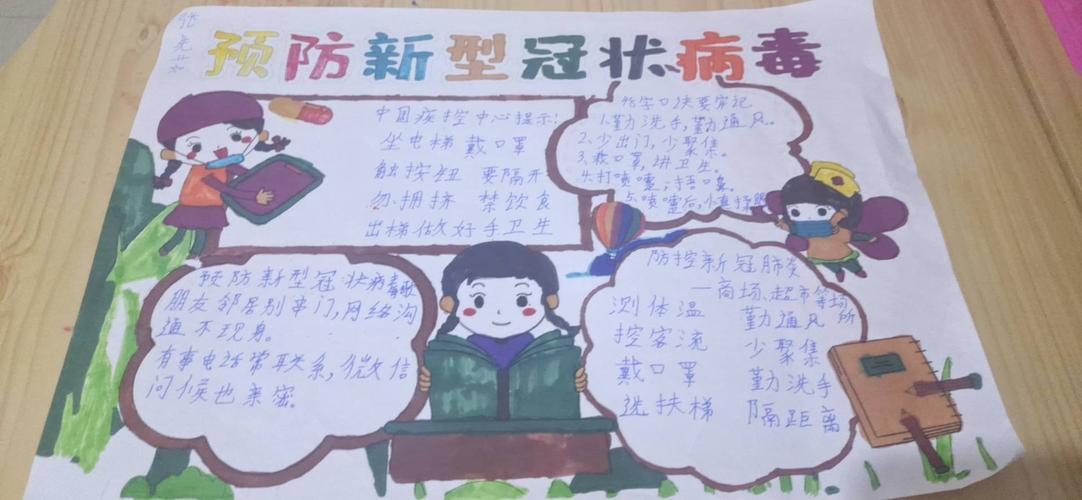 预防新型冠状病毒
中国疾控中心提示:
坐电梯 戴口罩
触按钮 要隔开
勿拥挤 禁饮食
出梯做好手卫生
字口诀要牢记
1.勤洗手,勤通风。
2、少出门,少聚集。
3、戴口罩,讲卫生。
4.打喷嚏,捂口鼻。
5.喷嚏后,
预防新型冠状病毒歌
朋友邻居别串门,网络沟
通不现身。
有事电话常联系,微信
问候也亲密。
防控新冠肺炎
—商场、超市等场所
测体温 勤通风
控客流 少聚集
戴口罩 勤洗手
选扶梯 隔距离